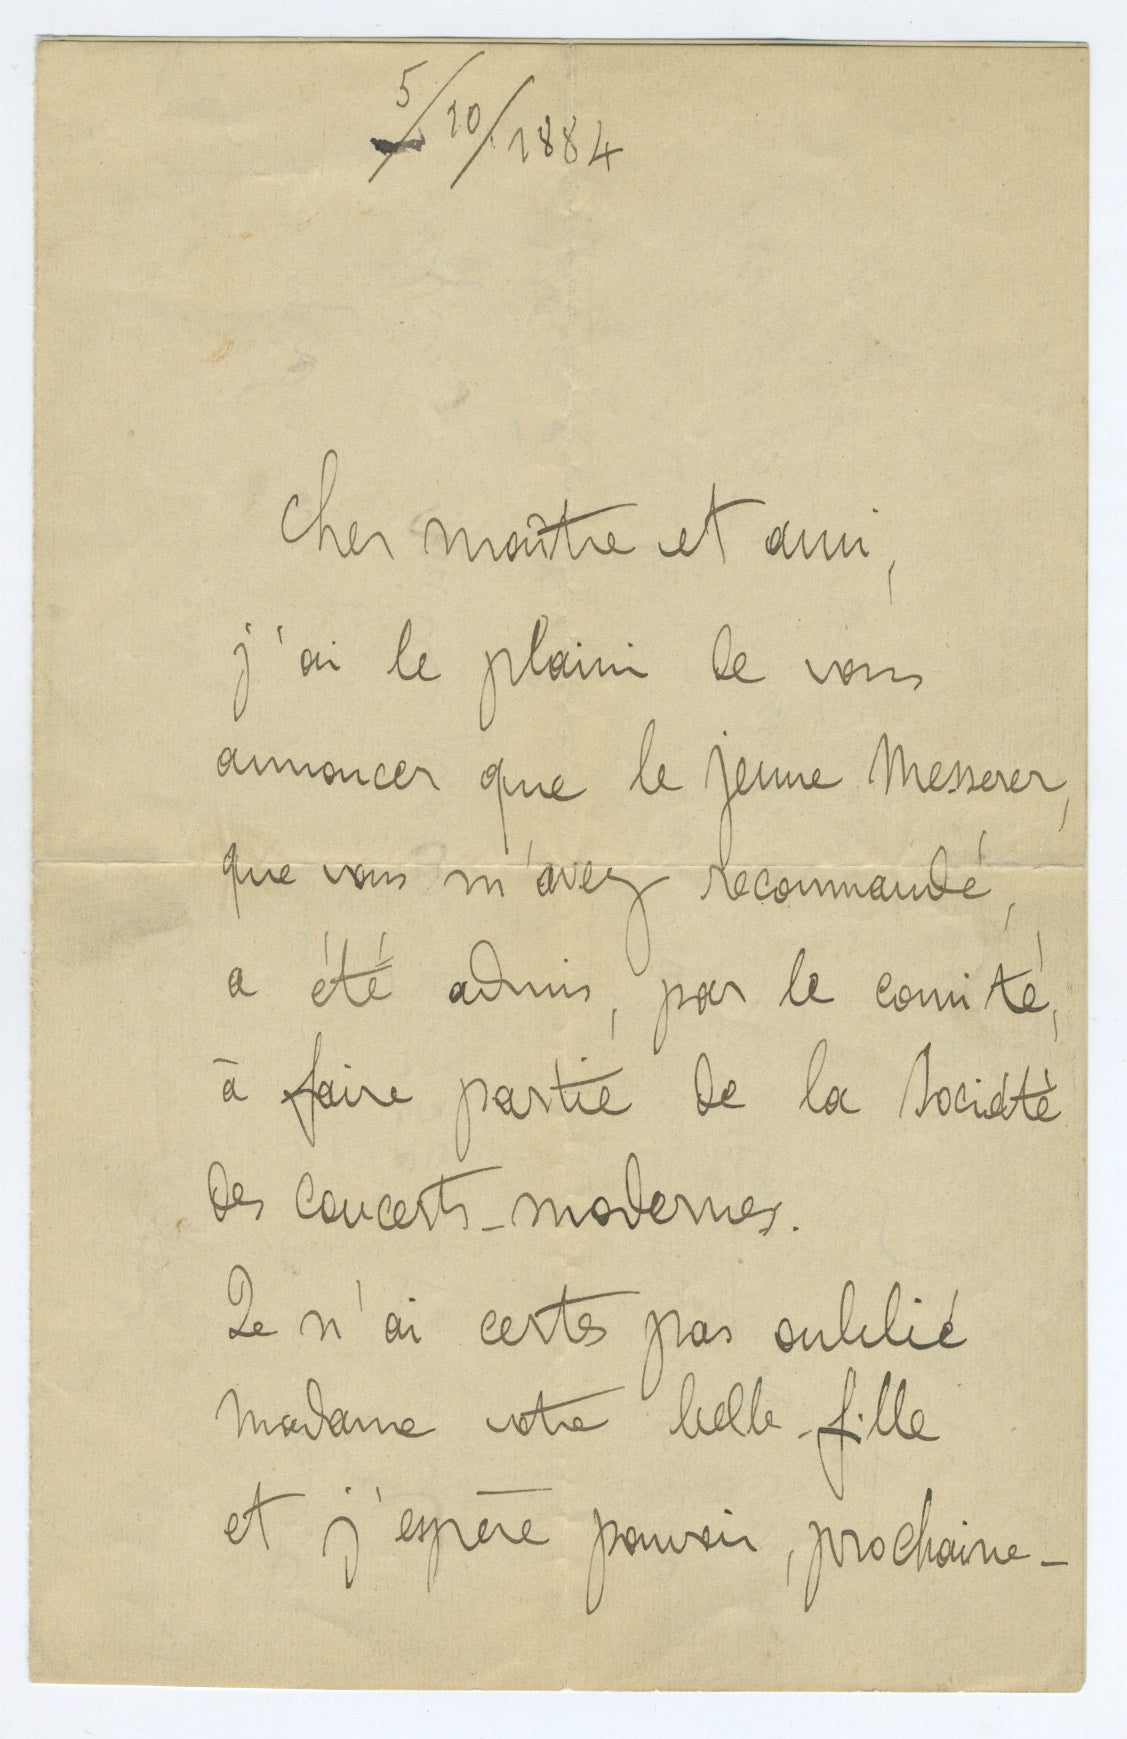 5/10/1884
Cher maître et ami,
j'ai le plaisir de vous
annoncer que le jeune Messerer,
que vous m'avez recommandé,
a été admis, par le comité,
à faire partie de la Société
des Concerts-modernes.
Je n'ai certes pas oublié
Madame votre belle-fille
et j'espère pouvoir, prochaine-